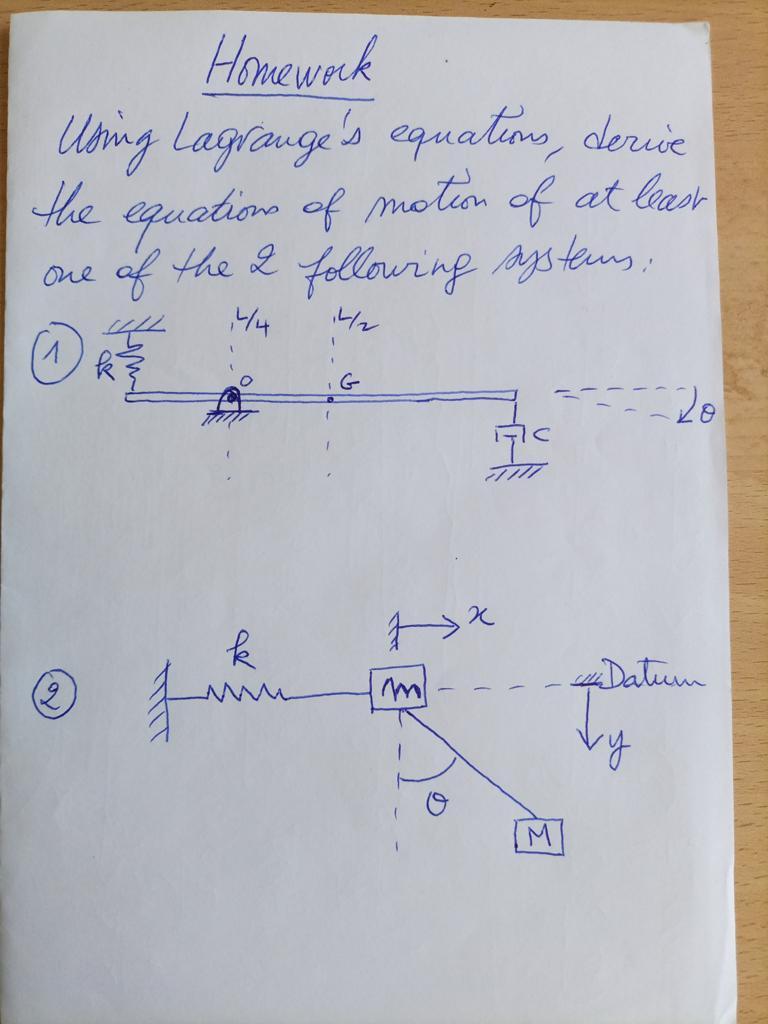 Homework
Using Lagrange's equations, derive
the equations of motion of at least
one of the 2 following systems:
1
L/4
L/2
k
O
G
C
θ
x
k
2
m
Datum
y
θ
M